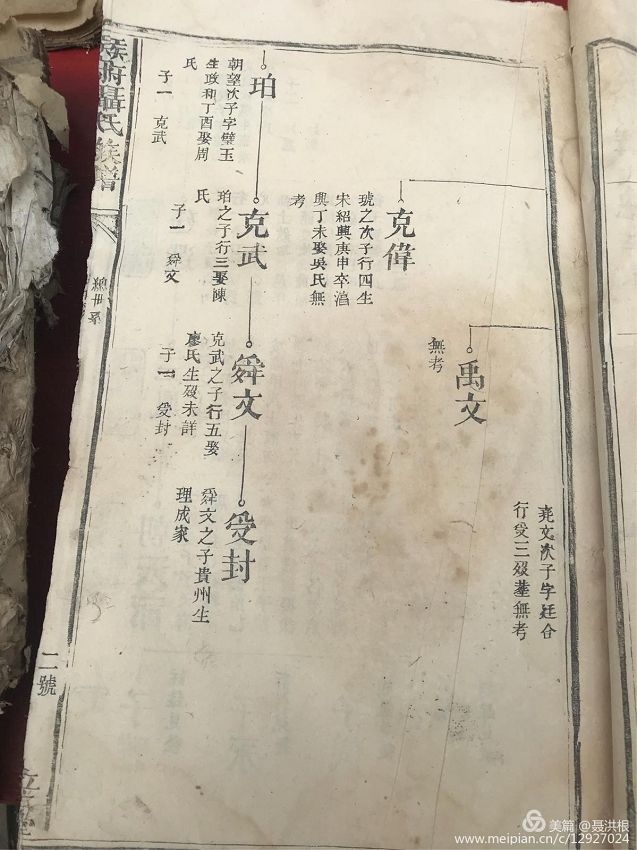 堯文次子字廷合
行受三歿塟無考
禹文
無考
克偉
琥之次子行四生
宋紹興庚申卒
丁未娶吳氏無
考
珀
朝望次子字璧玉
生政和丁酉娶周
氏
子一 克武
克武
珀之子行三娶陳
氏
子一 舜文
舜文
克武之子行五娶
廖氏生歿未詳
子一 受封
受封
舜文之子貴州生
理成家
聶氏族譜
二號
美篇 @聂洪根
www.meipian.cn/c/12927024